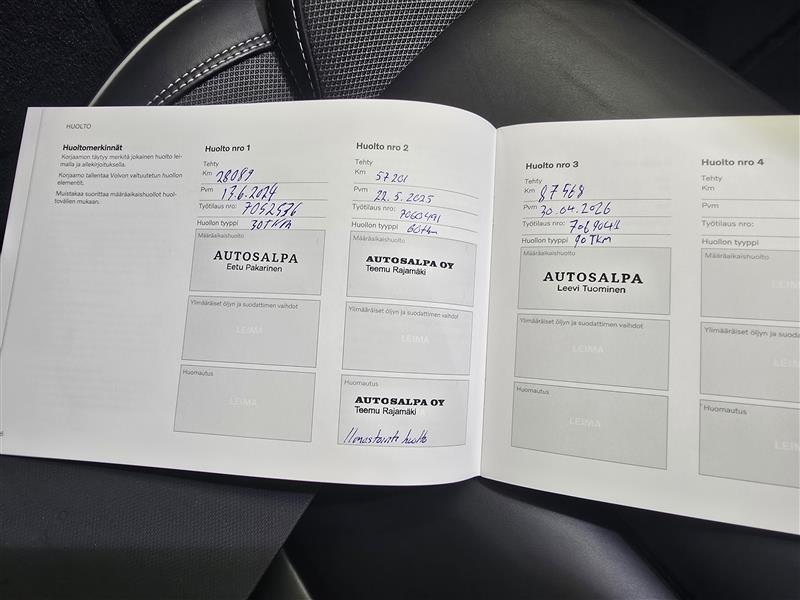 HUOLTO
Huoltomerkinnät
Korjaamon täytyy merkitä jokainen huolto lei-
malla ja allekirjoituksella.
Korjaamo tallentaa Volvon valtuutetun huollon
elementit.
Muistakaa suorittaa määräaikaishuollot huol-
tovälien mukaan.
Huolto nro 1
Tehty
Km 28089
Pvm 13.6.2024
Työtilaus nro: 7052576
Huollon tyyppi 30TKM
Määräaikaishuolto
AUTOSALPA
Eetu Pakarinen
Ylimääräiset öljyn ja suodattimen vaihdot
LEIMA
Huomautus
LEIMA
Huolto nro 2
Tehty
Km 57201
Pvm 22.5.2025
Työtilaus nro: 7060491
Huollon tyyppi 60tkm
Määräaikaishuolto
AUTOSALPA OY
Teemu Rajamäki
Ylimääräiset öljyn ja suodattimen vaihdot
LEIMA
Huomautus
AUTOSALPA OY
Teemu Rajamäki
Ilmastointi huolto
Huolto nro 3
Tehty
Km 87568
Pvm 30.04.2026
Työtilaus nro: 7069041
Huollon tyyppi 90TKm
Määräaikaishuolto
AUTOSALPA
Leevi Tuominen
Ylimääräiset öljyn ja suodattimen vaihdot
LEIMA
Huomautus
LEIMA
Huolto nro 4
Tehty
Km
Pvm
Työtilaus nro:
Huollon tyyppi
Määräaikaishuolto
LEIM
Ylimääräiset öljyn ja suodattimen
LEI
Huomautus
LEI